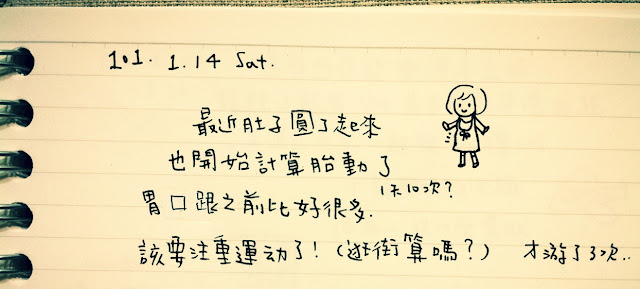 101. 1.14 Sat.
最近肚子圓了起來
也開始計算胎動了
1天10次？
胃口跟之前比好很多.
該要注重運动了！（逛街算嗎？） 才游了3次..